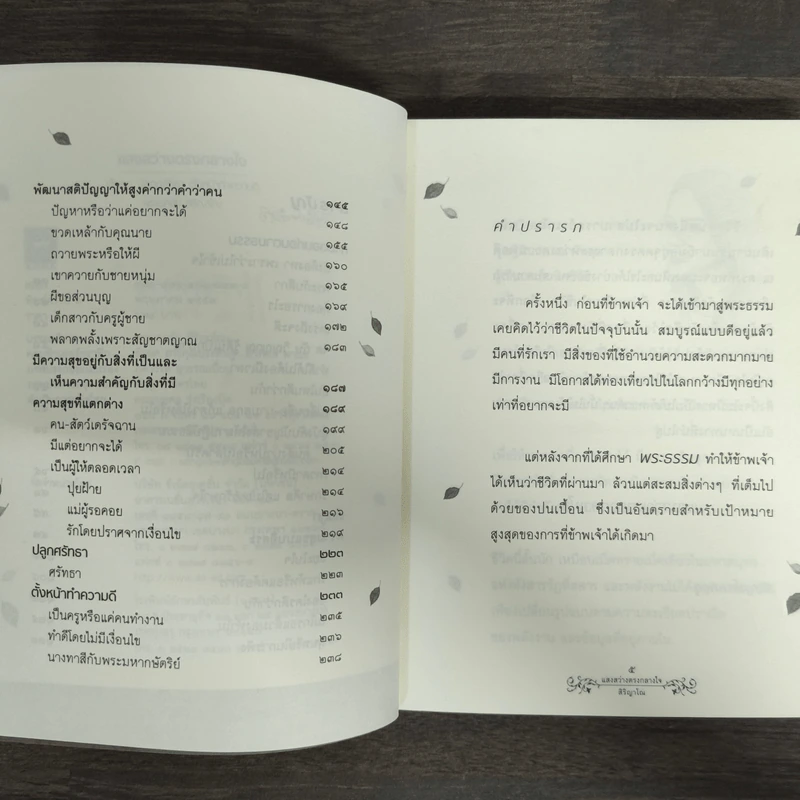 พัฒนาสติปัญญาให้สูงค่ากว่าคำว่าคน ๑๔๕
ปัญหาหรือว่าแค่อยากจะได้ ๑๔๘
ขวดเหล้ากับคุณนาย ๑๕๕
ถวายพระหรือให้ผี ๑๖๐
เขาควายกับชายหนุ่ม ๑๖๕
ผีขอส่วนบุญ ๑๖๙
เด็กสาวกับครูผู้ชาย ๑๗๒
พลาดพลั้งเพราะสัญชาตญาณ ๑๘๓
มีความสุขอยู่กับสิ่งที่เป็นและ
เห็นความสำคัญกับสิ่งที่มี ๑๘๗
ความสุขที่แตกต่าง ๑๘๙
คน-สัตว์เดรัจฉาน ๑๙๙
มีแต่อยากจะได้ ๒๐๕
เป็นผู้ให้ตลอดเวลา ๒๑๔
ปุยฝ้าย ๒๑๔
แม่ผู้รอคอย ๒๑๖
รักโดยปราศจากเงื่อนไข ๒๑๙
ปลูกศรัทธา ๒๒๓
ศรัทธา ๒๒๓
ตั้งหน้าทำความดี ๒๓๓
เป็นครูหรือแค่คนทำงาน ๒๓๕
ทำดีโดยไม่มีเงื่อนไข ๒๓๖
นางทาสีกับพระมหากษัตริย์ ๒๓๘
คำปรารภ
ครั้งหนึ่ง ก่อนที่ข้าพเจ้า จะได้เข้ามาสู่พระธรรม
เคยคิดไว้ว่าชีวิตในปัจจุบันนั้น สมบูรณ์แบบดีอยู่แล้ว
มีคนที่รักเรา มีสิ่งของที่ใช้อำนวยความสะดวกมากมาย
มีการงาน มีโอกาสได้ท่องเที่ยวไปในโลกกว้างมีทุกอย่าง
เท่าที่อยากจะมี
แต่หลังจากที่ได้ศึกษา พระธรรม ทำให้ข้าพเจ้า
ได้เห็นว่าชีวิตที่ผ่านมา ล้วนแต่สะสมสิ่งต่างๆ ที่เต็มไป
ด้วยของปนเปื้อน ซึ่งเป็นอันตรายสำหรับเป้าหมาย
สูงสุดของการที่ข้าพเจ้าได้เกิดมา
๕
แสงสว่างตรงกลางใจ
สิริญาโณ